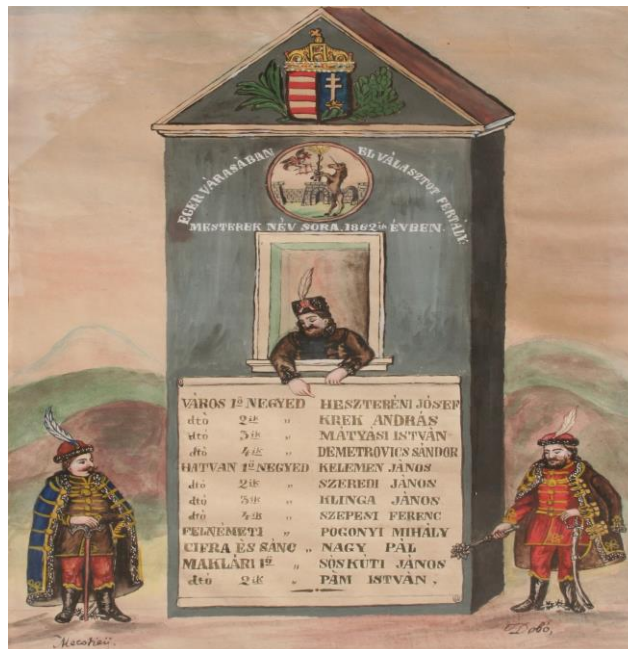 EGER VÁRASÁBAN EL VÁLASZTOT FERTÁLY-
MESTEREK NÉV SORA, 1862ik ÉVBEN.
VÁROS 1ő NEGYED HESZTERÉNI JÓSEF
dtó 2ik „ KREK ANDRÁS
dtó 3ik „ MÁTYÁSI ISTVÁN
dtó 4ik „ DEMETROVICS SÁNDOR
HATVAN 1ő NEGYED KELEMEN JÁNOS
dtó 2ik „ SZEREDI JÁNOS
dtó 3ik „ KLINGA JÁNOS
dtó 4ik „ SZEPESI FERENC
FELNÉMETI „ POGONYI MIHÁLY
CIFRA ÉS SÁNC „ NAGY PÁL
MAKLÁRI 1ő „ SÓSKÚTI JÁNOS
dtó 2ik „ PÁM ISTVÁN.
Dobó,